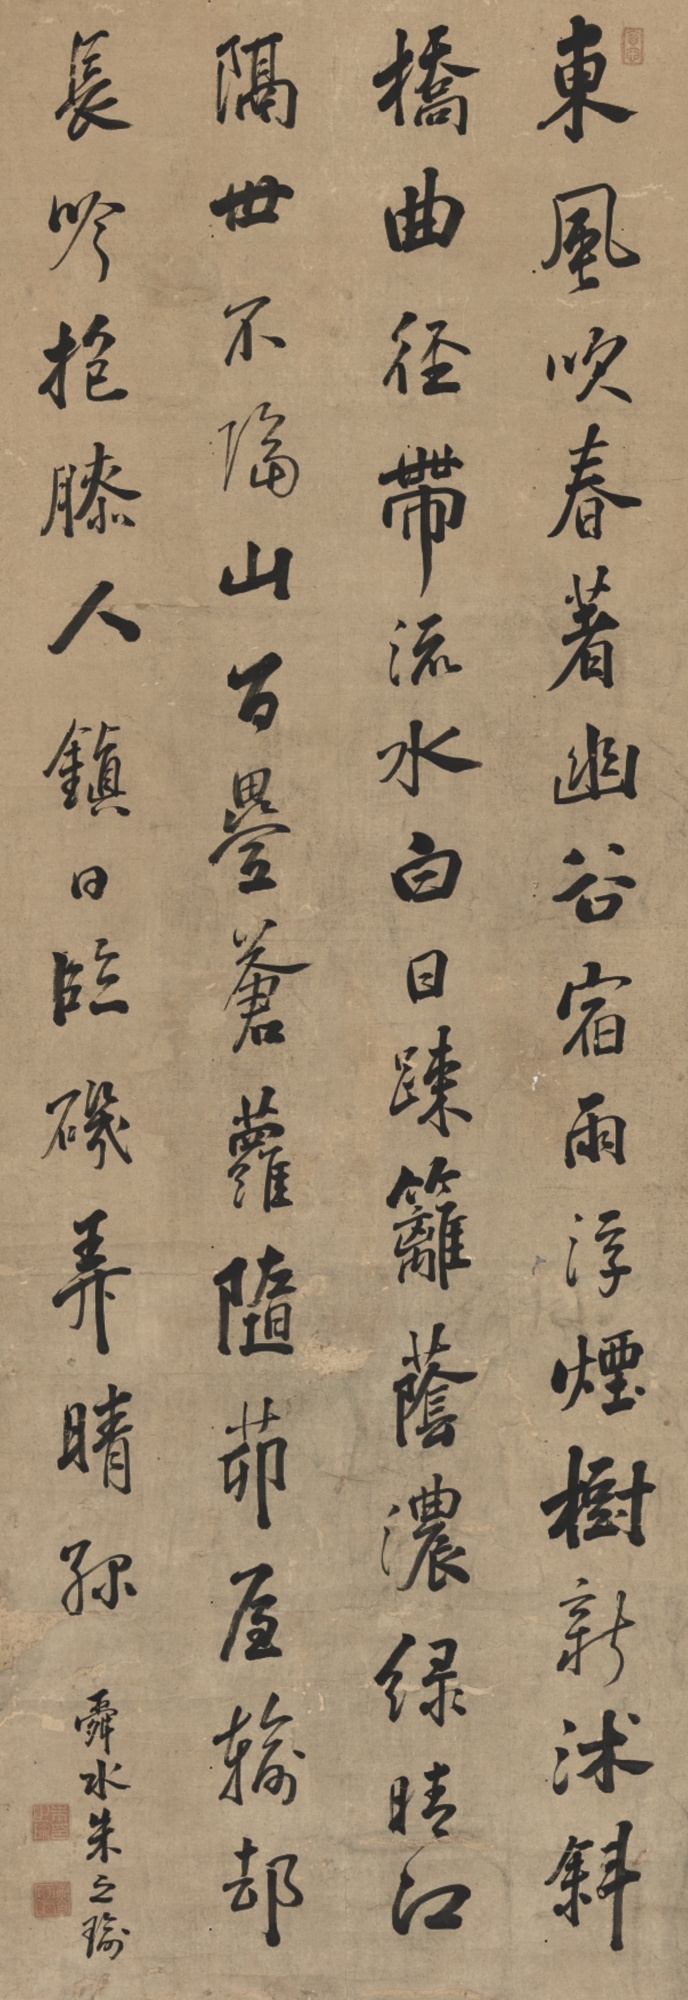 東風吹春著幽谷宿雨浮煙樹新沐斜
橋曲徑帶流水白日疎籬蔭濃綠晴江
隔世不隔山百疊蒼蘿隨茆屋輸却
長吟抱膝人鎮日臨磯弄晴
舜水朱之瑜